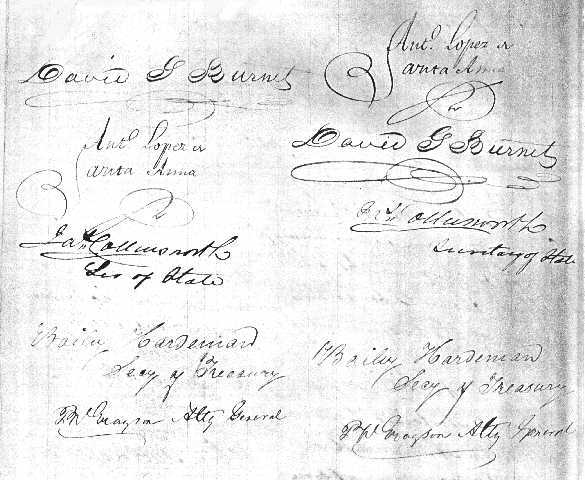 David G Burnet
Ant.º Lopez de
Santa Anna
Jas Collinsworth
Sec of State
Bailey Hardeman
Secy of Treasury
P W Grayson Atty General
Ant.º Lopez de
Santa Anna
David G Burnet
Jas Collinsworth
Secretary of State
Bailey Hardeman
Secy of Treasury
P W Grayson Atty General